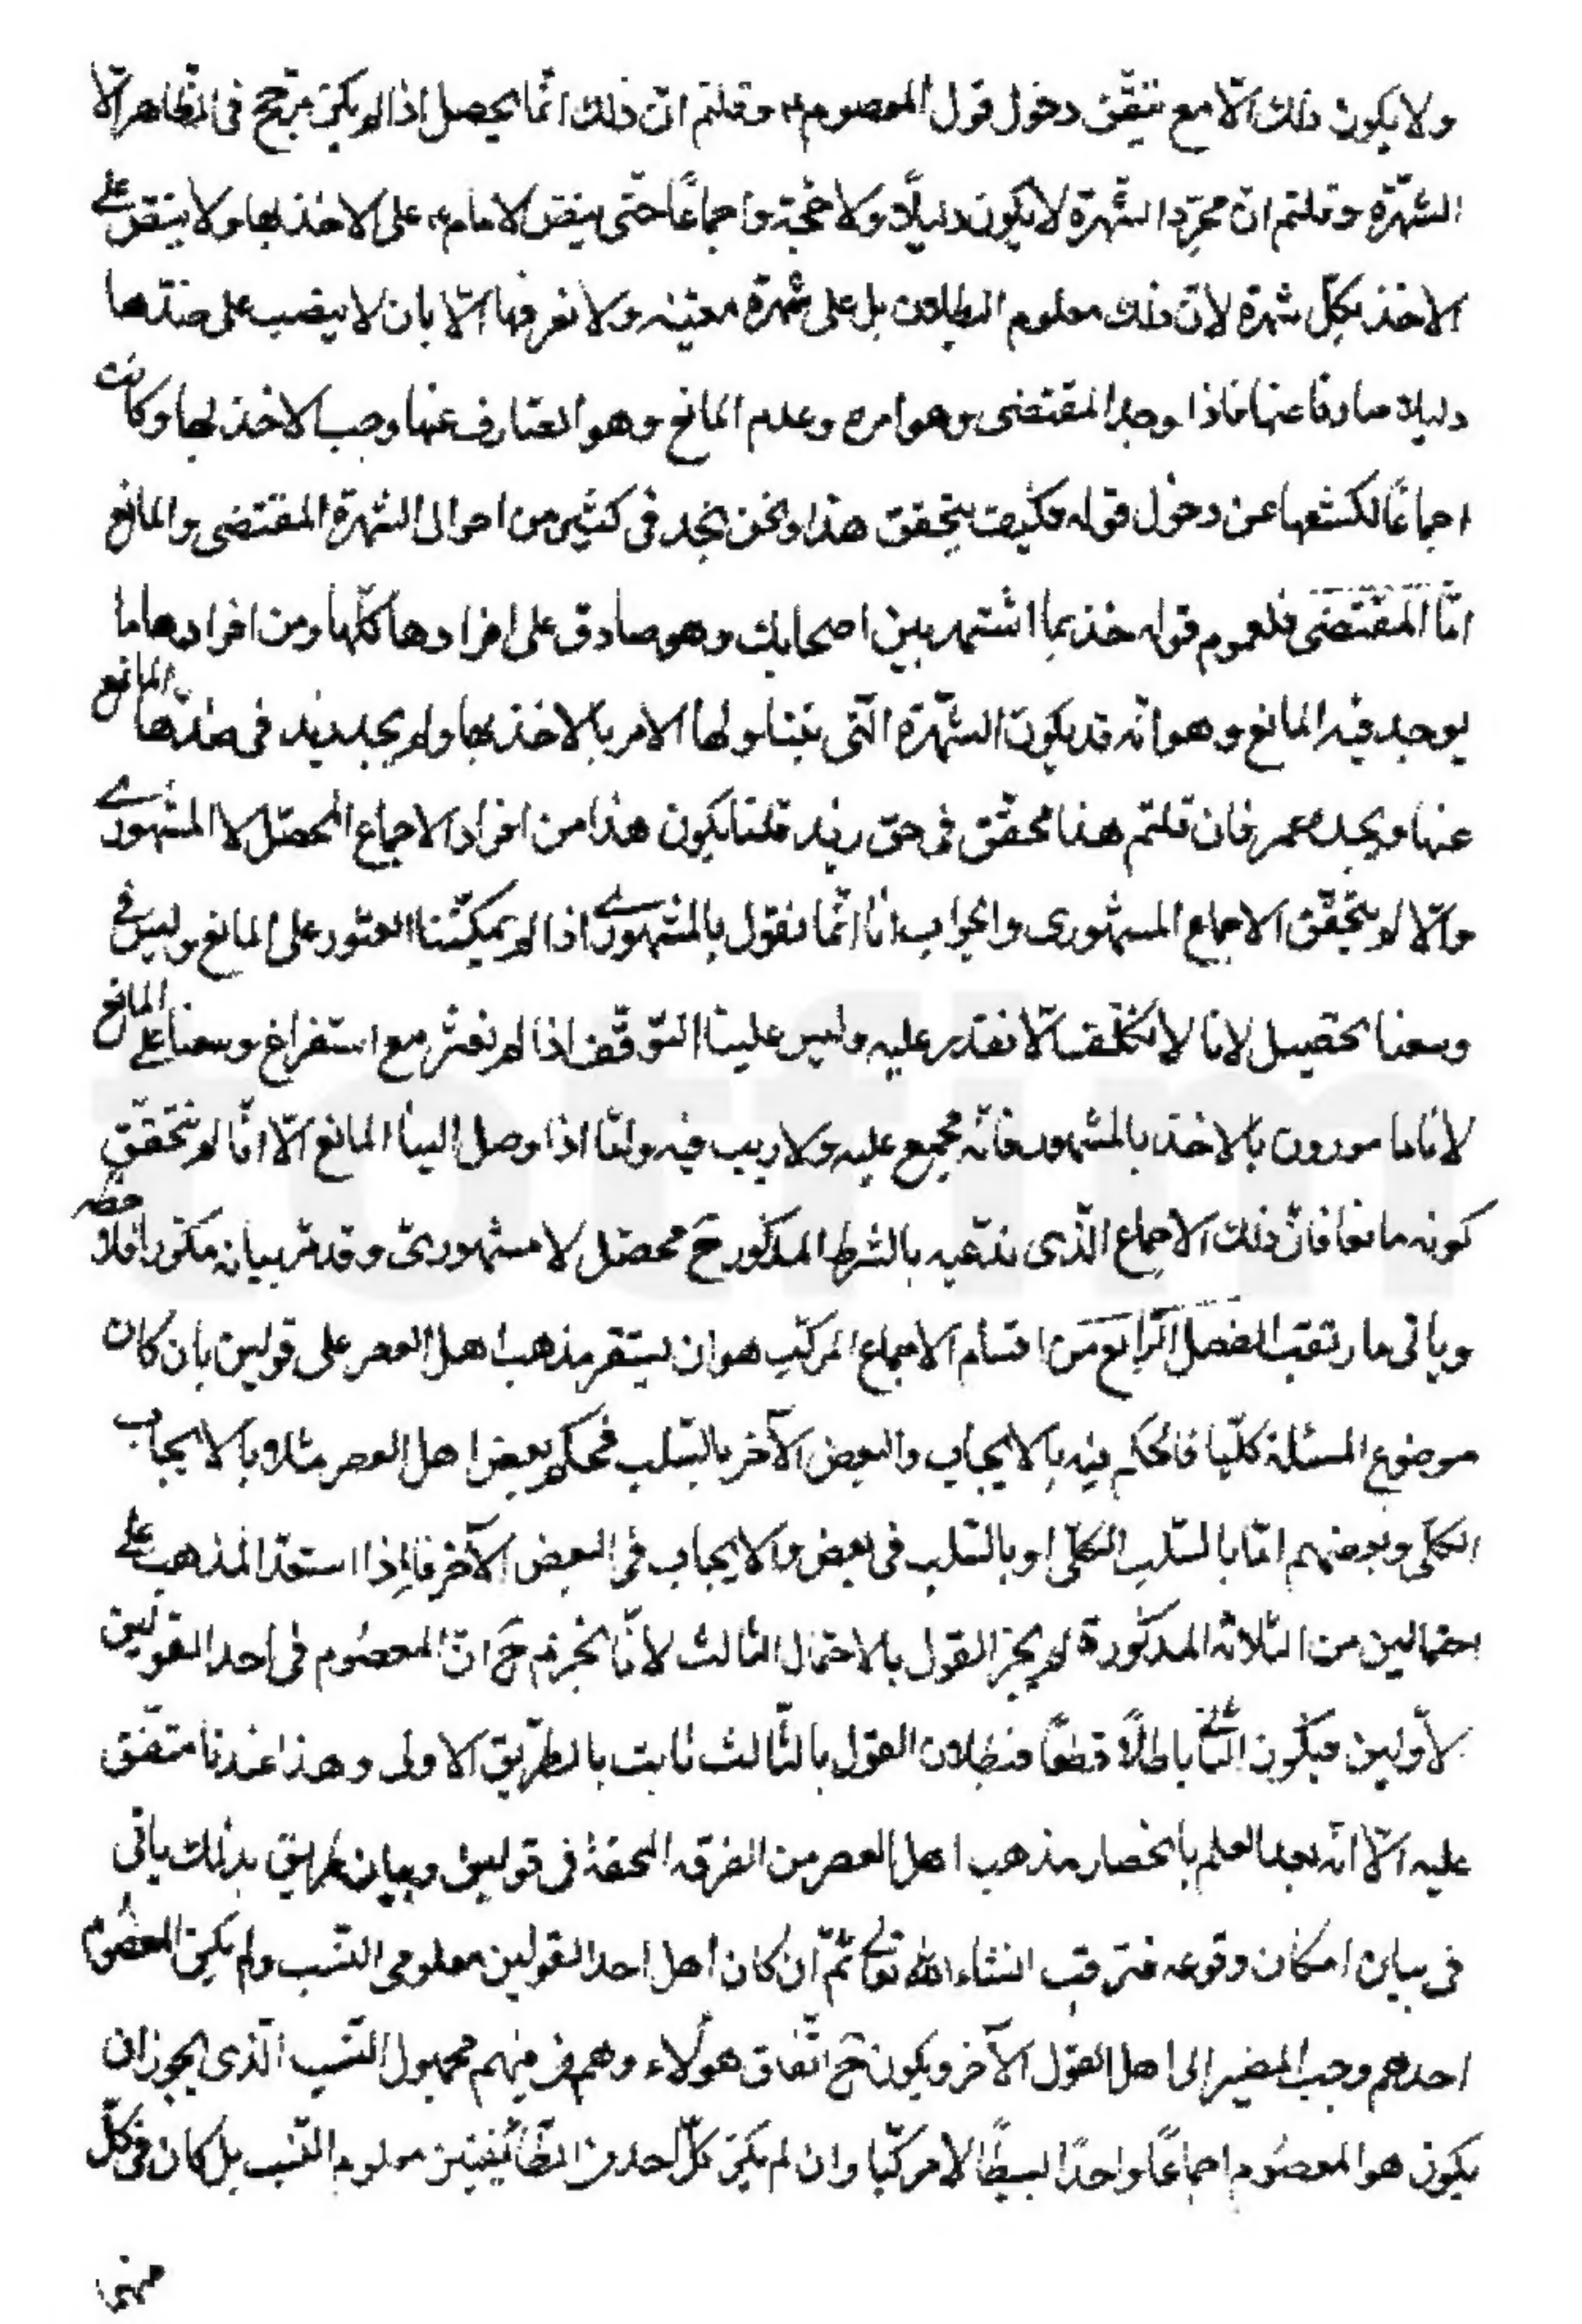 ولا يكون ذلك الّا مع تيقّن دخول قول المعصوم ع، وقلتم انّ ذلك انّما يحصل اذا لم يكن مرجّح فى الظّاهر الّا
الشّهرة وقلتم انّ مجرّد الشّهرة لا يكون دليلًا ولا حجّة واجماعًا حتّى ينصّ الامام ع على الاخذ بها ولا ينصّ على
الاخذ بكلّ شهرة لانّ ذلك معلوم البطلان بل على شهرة معيّنه ولا نعرفها الّا بان لا ينصب على ضدّها
دليلا صارفا عنها فاذا وجد المقتضى وهو امره وعدم المانع وهو الصارف عنها وجب الاخذ بها وكانت
اجماعًا لكشفها عن دخول قوله فكيف يتحقق هذا ونحن نجد فى كثير من احوال الشهرة المقتضى والمانع
امّا المقتضى فلعموم قوله خذ بما اشتهر بين اصحابك وهو صادق على افرادها كلّها ومن افرادها ما
يوجد فيه المانع وهو انّه قد يكون الشّهرة الّتى يتناولها الامر بالاخذ بها ولم يجد زيد فى ضدّها المانع
عنها ويجده عمرو فان قلتم هذا محقّق فى حق زيد قلنا يكون هذا من افراد الاجماع المحصّل لا المشهورى
والّا لم يتحقّق الاجماع المشهورى والجواب انا انّما نقول بالمشهورى اذا لم يمكننا العثور على المانع وليس فى
وسعنا تحصيل لانا لا نكلّف الّا نقدر عليه وليس علينا التوقّف اذا لم نعثر مع استفراغ وسعنا على المانع
لانا مامورون بالاخذ بالمشهور فانّه مجمع عليه ولا ريب فيه وامّا اذا وصل الينا المانع الّا انّا لم نتحقّق
كونه مانعا فانّ ذلك الاجماع الّذى ندّعيه بالشرط المذكور ح محصّل لا مشهورىّ وقد مرّ بيانه مكرّرا فلاحظه
وياتى ما رتقب الفصل الرّابع من اقسام الاجماع المركّب هو ان يستقر مذهب اهل العصر على قولين بان كان
موضوع المسئلة كلّيا فالحكم فيه بالايجاب والبعض الآخر بالسّلب فحكم بعض اهل العصر مثلا بالايجاب
الكلّى وبعضهم امّا بالسّلب الكلّى او بالسّلب فى بعض والايجاب فى البعض الآخر فاذا استقرّ المذهب على
احتمالين من الثلاثه المذكورة لم يجز القول بالاحتمال الثالث لانّا نجزم ح انّ المعصوم فى احد القولين
الأولين فيكون الثانى باطلًا قطعًا فبطلان القول بالثّالث ثابت بالطريق الاولى وهذا عندنا متّفق
عليه الّا انّه بعد العلم بانحصار مذهب اهل العصر من الفرقه المحقة فى قولين وبيان طريق بذلك ياتى
فى بيان امكان وقوعه فترقب انشاء الله تعالى ثمّ ان كان اهل احد القولين معلومى النّسب ولم يكن المعصوم
احدهم وجب المصير الى اهل القول الآخر ويكون ح اتّفاق هولاء وهم من فيهم مجهول النّسب الّذى يجوز ان
يكون هو المعصوم اجماعًا واحدًا بسيطًا لا مركّبا وان لم يكن كلّ احد من الطّائفيتين معلوم النّسب بل كان فى كلّ
منهما